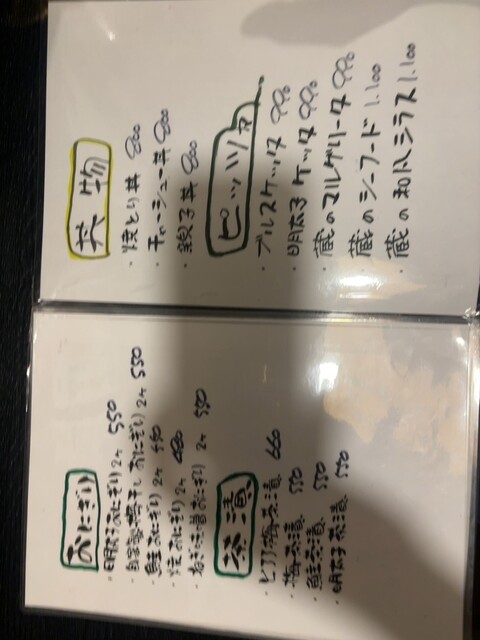 おにぎり
・明太子おにぎり 2ヶ 550
・自家製梅干しおにぎり 2ヶ 550
・鮭おにぎり 2ヶ 450
・焼おにぎり 2ヶ 480
・ねぎ味噌おにぎり 2ヶ 550
茶漬
・ヒアリ梅茶漬 660
・梅茶漬 550
・鮭茶漬 550
・明太子茶漬 550
丼物
・焼とり丼 800
・チャーシュー丼 800
・親子丼 800
ピッツァ
・ブルスケッタ 990
・明太子ケッタ 990
・蔵のマルゲリータ 990
・蔵のシーフード 1.100
・蔵の和風シラス 1.100